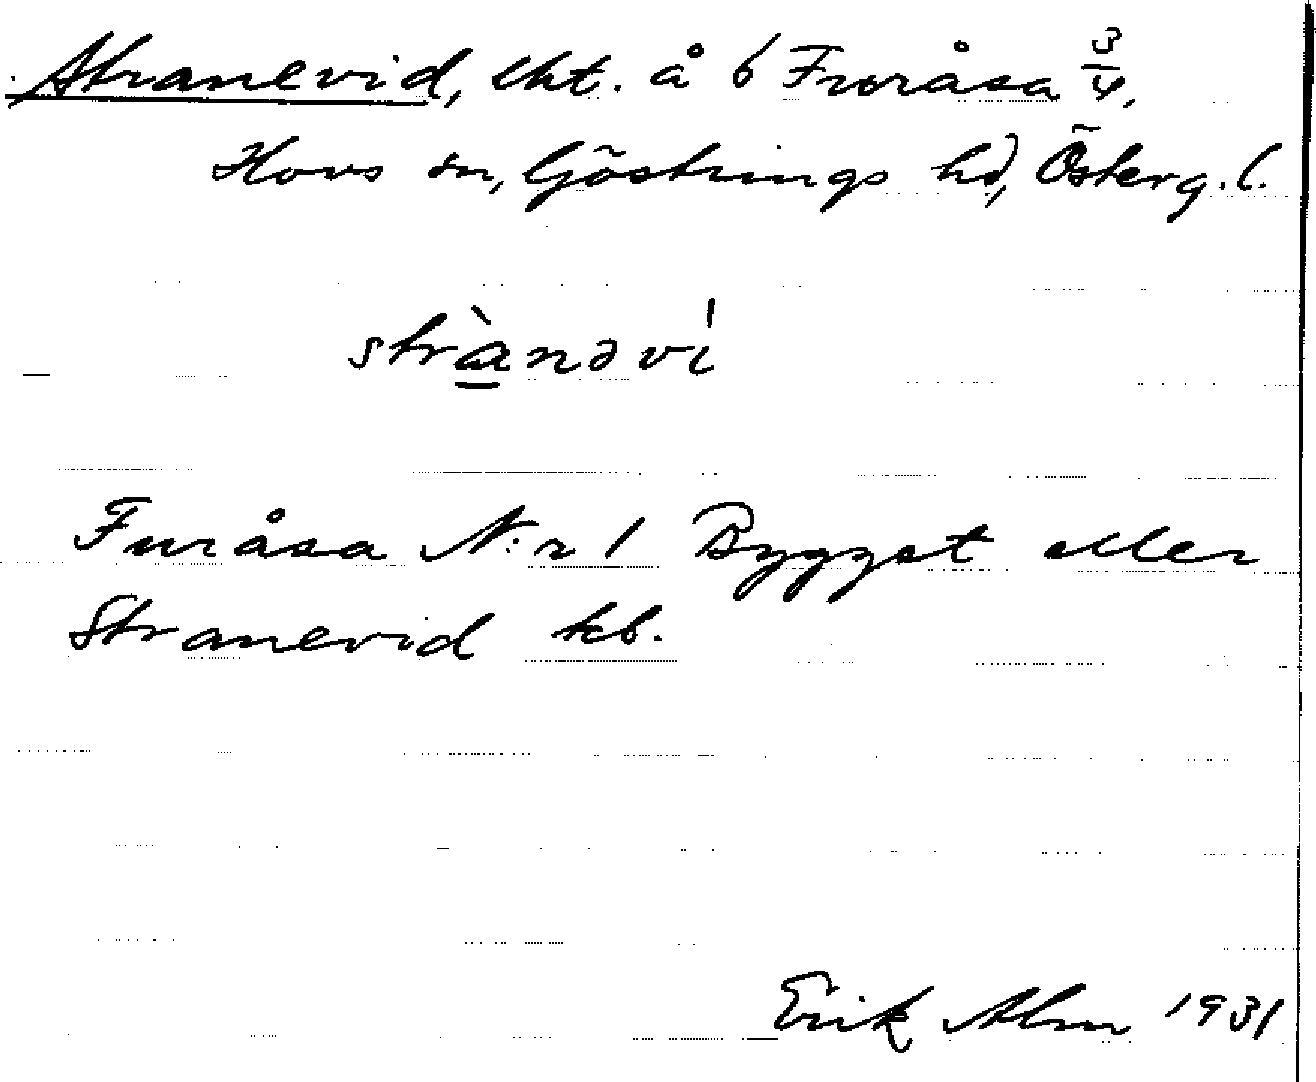 Stranevid, lht. å 6 Furåsa 3/4,
Hovs sn, Göstrings hd, Österg. l.
strànəvi̍
Furåsa N:r 1 Byggst eller
Stranevid kb.
Erik Alm 1931